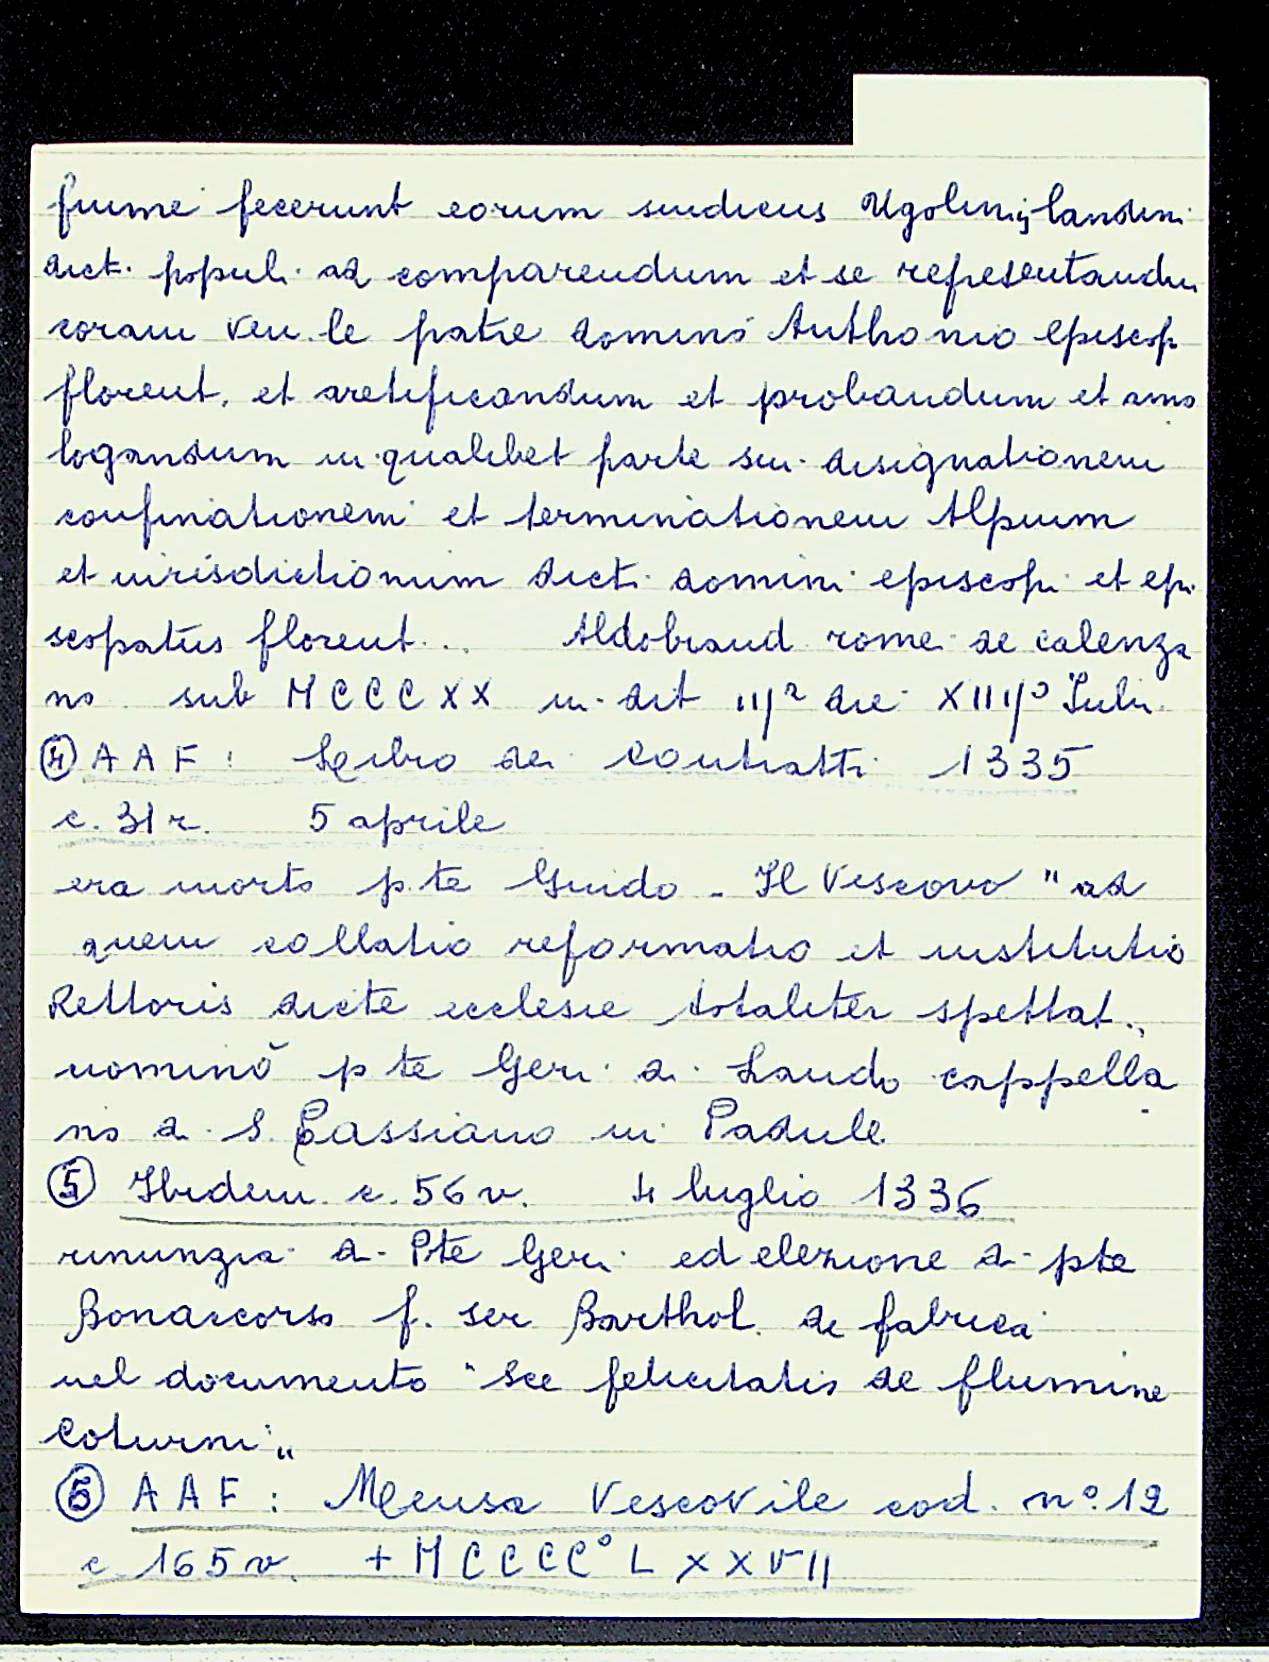 fiume fecerunt eorum sindicus Ugolinij landini
dict. populi ad comparendum et se representandu
coram ven.le patre domino Anthonio episcop
florent. et aretificandum et probandum et amo
logandum in qualibet parte sui designationem
confinationem et terminationem Alpium
et iurisdictionum dicti domini episcopi et epi
scopatus florent... Aldobrand rome de calenza
no sub MCCCXX in dit IIIª die XIIIIº Iulii
④ AAF: Libro dei contratti 1335
c. 31 r. 5 aprile
era morto p.te Guido - Il Vescovo "ad
quem collatio reformatio et institutio
Rettoris dicte ecclesie totaliter spettat„
nominò p te Geri di Lando cappella
no di S. Cassiano in Padule
⑤ Ibidem c. 56 v. 4 luglio 1336
rinunzia di P.te Geri ed elezione di pte
Bonaccorso f. ser Barthol. de fabrica
nel documento "Sce felicitatis de flumine
Coturni„
⑥ AAF: Mensa Vescovile cod. nº. 12
c 165 v. + MCCCC° LXXVII